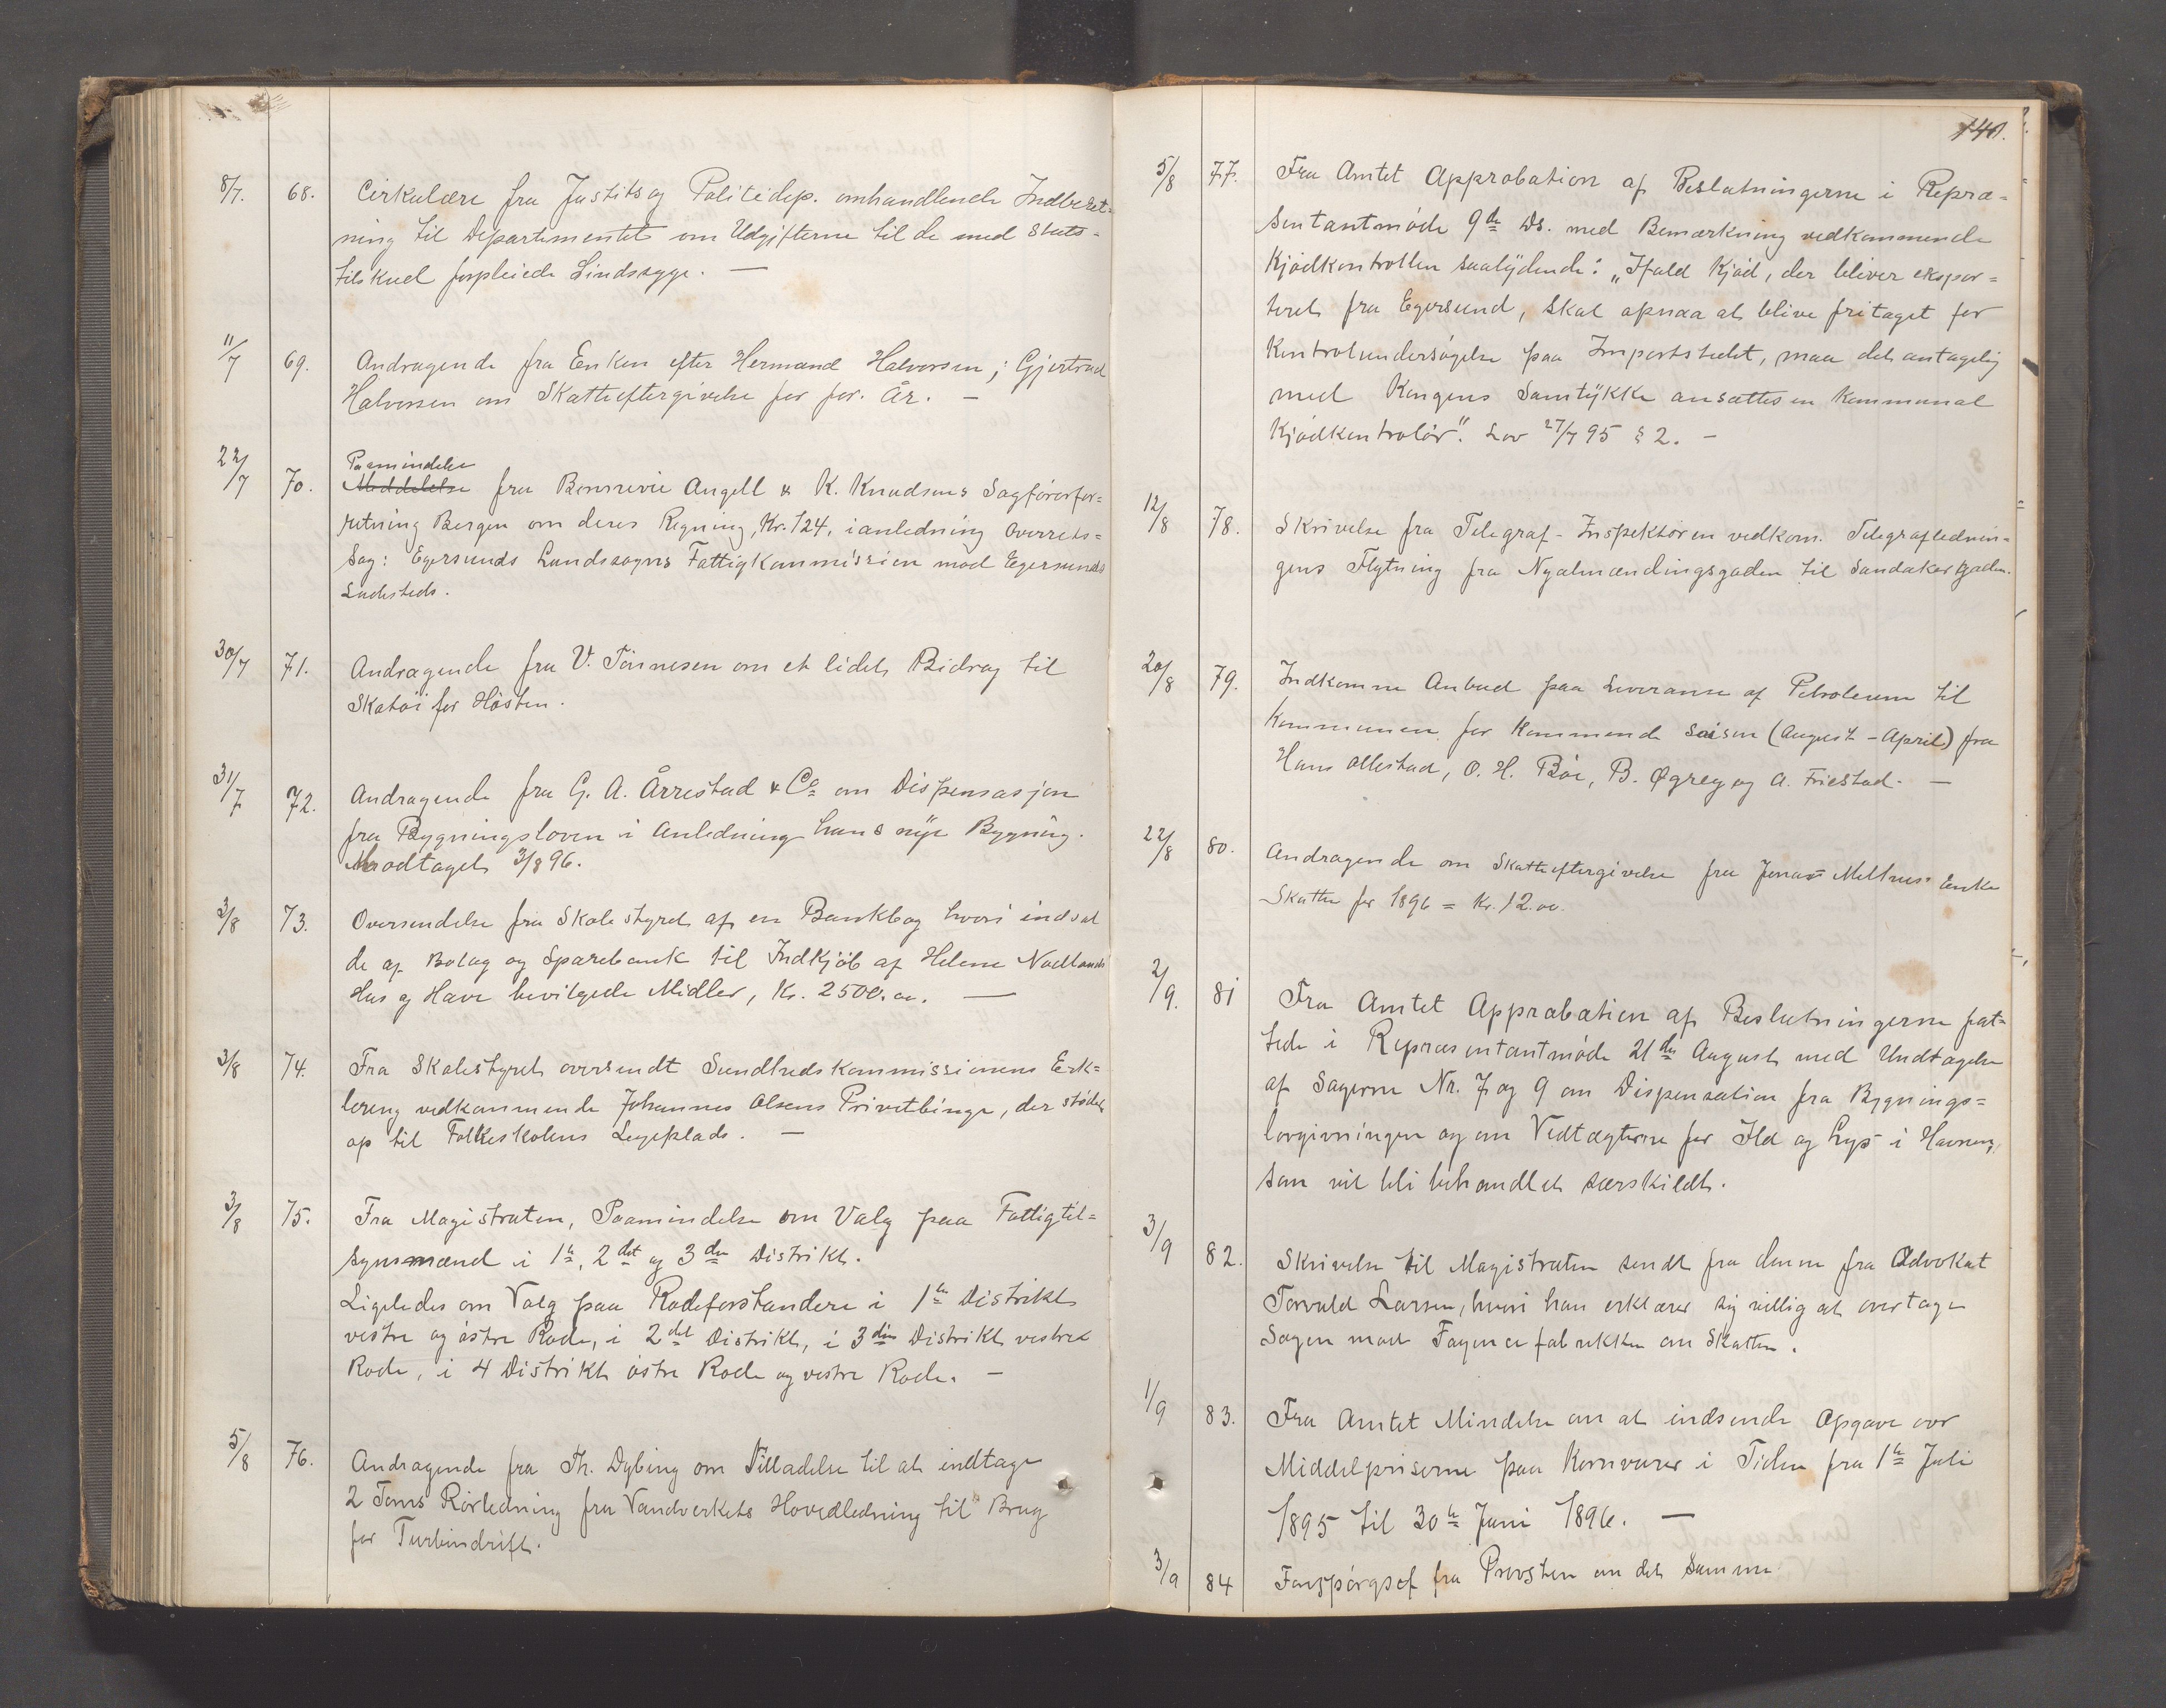 8/7. 68. Cirkulære fra Justits og Politidep. omhandlende Indberet-
ning til Departementet om Udgifterne til de med Stats-
tilskud forpleiede Sindssyge. —
11/7 69. Andragende fra Enken efter Hermand Halvorsen; Gjertrud
Halvorsen om Skatteeftergivelse for for. År. —
22/7 70. Paamindelse
Meddelelse fra Angell & K. Knudsens Sagførerfor=
retning Bergen om deres Regning, Kr. 124, i anledning Overrets=
Sag: Egersunds Landssogns Fattigkommission mod Egersunds
Ladesteds.
30/7 71. Andragende fra V. Tönnesen om et lidet Bidrag til
Skatöi for Hösten.
31/7 72. Andragende fra G. A. Årrestad & Co om Dispensasjon
fra Bygningsloven i Anledning hans nye Bygning.
Modtaget 3/8 96.
3/8 73. Oversendelse fra Skolestyret af en Bankbog hvori indsat
de af Bolag og Sparebank til Indkjöb af Helene Nodlands
Hus og Have bevilgede Midler, Kr. 2500.00. —
3/8 74. Fra Skolestyret oversendt Sundhedskommissionens Erk=
lering vedkommende Johannes Olsens Privetbinge, der stöder
op til Folkeskolens Legeplads. —
3/8 75. Fra Magistraten, Paamindelse om Valg paa Fattigtil=
synsmænd i 1ste, 2det og 3die Distrikt.
Ligeledes om Valg paa Rodeforstandere i 1ste Distrikt
vestre og östre Rode, i 2det Distrikt, i 3die Distrikt vestre
Rode, i 4 Distrikt östre Rode og vestre Rode. —
5/8 76. Andragende fra Th. Dybing om Tilladelse til at indtage
2 Toms Rörledning fra Vandverkets Hovedledning til Brug
for Turbindrift.
140.
5/8 77. Fra Amtet Approbation af Beslutningerne i Repræ=
sentantmöde 9de Ds. med Bemærkning vedkommende
Kjödkontrollen saalydende: „Ifald Kjöd, der bliver expor=
teret fra Egersund, skal opnaa at blive fritaget for
Kontrolundersögelse paa Importstedet, maa det antagelig
med Kongens Samtykke ansættes en Kommunal
Kjödkontrolör". Lov 27/7 95 § 2. —
12/8 78. Skrivelse fra Telegraf-Inspektören vedkom. Telegrafledning=
gens Flytning fra Nyalmændingsgaden til Sandakergaden.
20/8 79. Indkomne Anbud paa Leveranse af Petroleum til
Kommunen for kommende Saison (August - April) fra
Hans Ollestad, O. H. Böe, B. Øgrey og A. Friestad. —
22/8 80. Andragende om Skatteeftergivelse fra Jonas Enke
Skatten for 1896 = Kr. 12.00.
2/9. 81 Fra Amtet Approbation af Beslutningerne fat=
tede i Repræsentantmöde 21de August med Undtagelse
af Sagerne Nr. 7 og 9 om Dispensation fra Bygnings=
lovgivningen og om Vedtægterne for Ild og Lys i Havnen,
som vil bli behandlet særskildt.
3/9 82. Skrivelse til Magistraten sendt fra denne fra Advokat
Torvald Larsen, hvori han erklærer sig villig at overtage
Sagen mod Fayencefabrikken om Skatten.
1/9 83. Fra Amtet Mindelse om at indsende Opgave over
Middelpriserne paa Kornvarer i Tiden fra 1ste Juli
1895 til 30te Juni 1896. —
3/9 84 Forspörgsel fra Provsten om det Samme